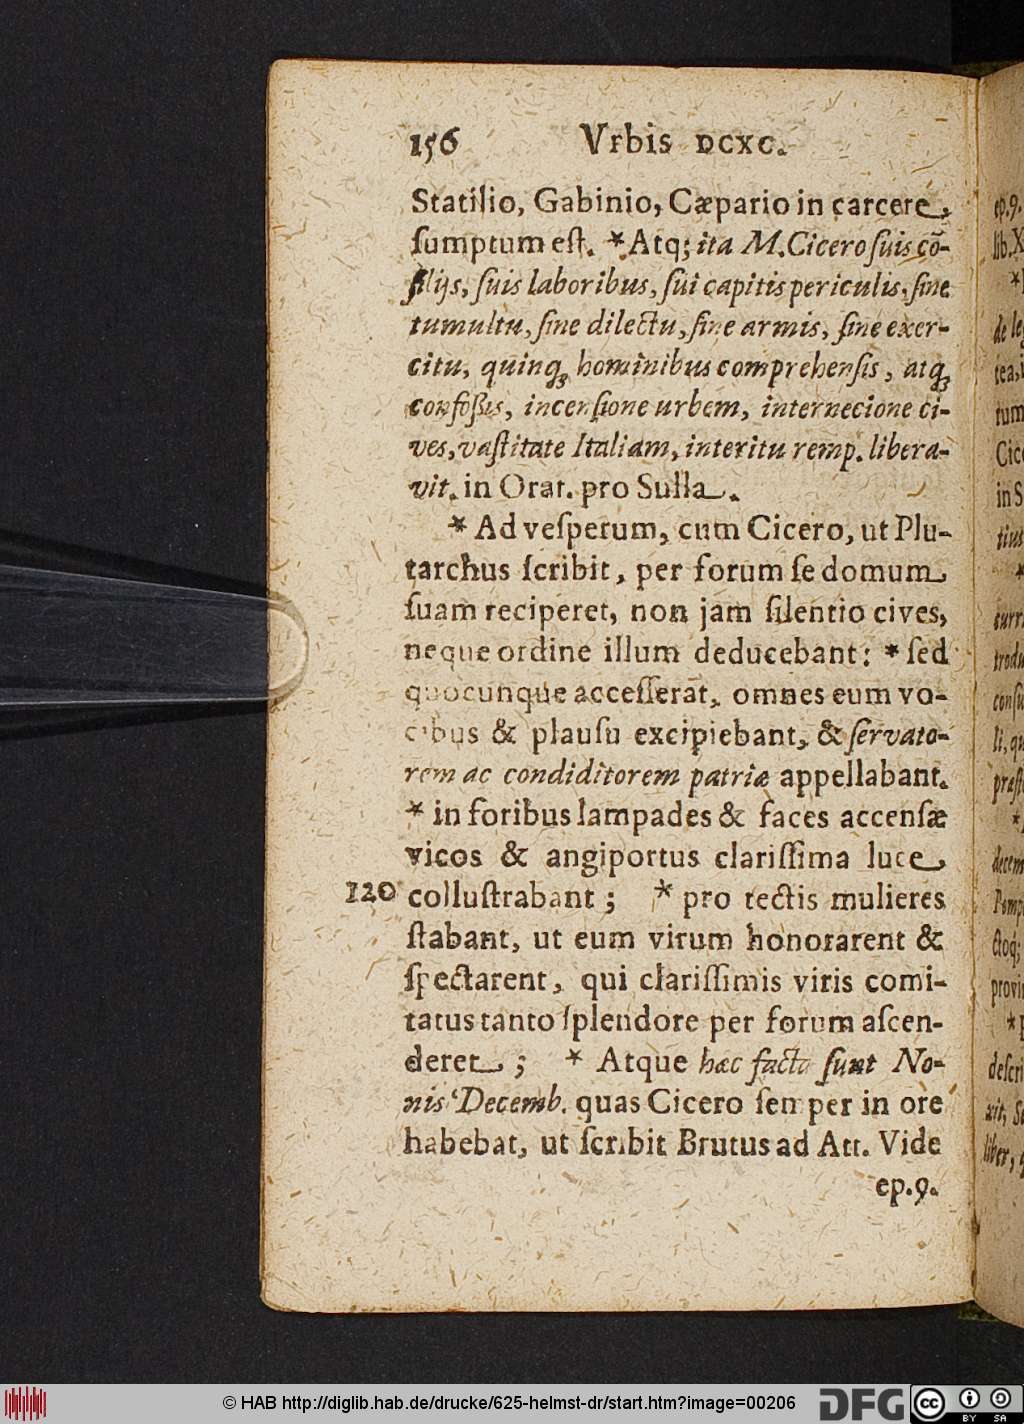 156 Vrbis DCXC.
Statilio, Gabinio, Cæpario in carcere,
ſumptum eſt. *Atq; ita M. Cicero ſuis cō-
ſilijs, ſuis laboribus, ſui capitis periculis, ſine
tumultu, ſine dilectu, ſine armis, ſine exer-
citu, quinq; hominibus comprehenſis, atq;
confoßis, incenſione urbem, internecione ci-
ves, vaſtitate Italiam, interitu remp. libera-
vit. in Orat. pro Sulla.
* Ad veſperum, cum Cicero, ut Plu-
tarchus ſcribit, per forum ſe domum
ſuam reciperet, non jam ſilentio cives,
neque ordine illum deducebant: * ſed
quocunque acceſſerat, omnes eum vo-
cibus & plauſu excipiebant, & ſervato-
rem ac condiditorem patriæ appellabant.
* in foribus lampades & faces accenſæ
vicos & angiportus clariſſima luce
120 colluſtrabant; * pro tectis mulieres
ſtabant, ut eum virum honorarent &
ſpectarent, qui clariſſimis viris comi-
tatus tanto ſplendore per forum aſcen-
deret; * Atque hæc facta ſunt No-
nis Decemb. quas Cicero ſemper in ore
habebat, ut ſcribit Brutus ad Att. Vide
ep. 9.
© HAB http://diglib.hab.de/drucke/625-helmst-dr/start.htm?image=00206
DFG
cc BY SA